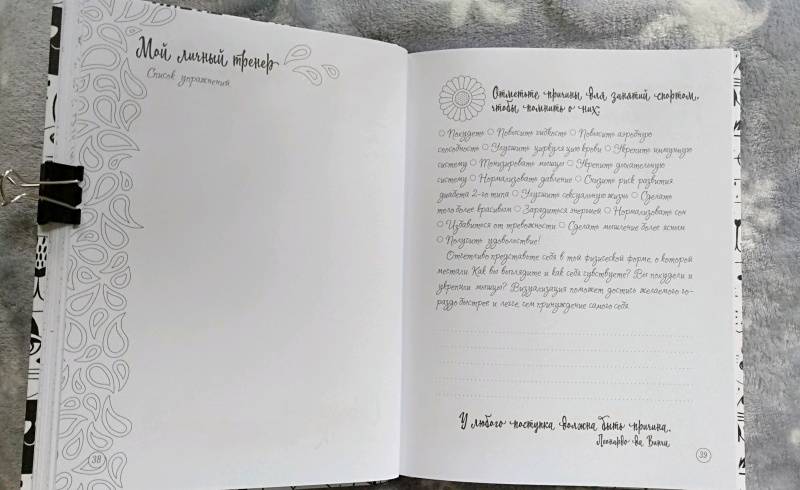 Мой личный тренер
Список упражнений
38
Отметьте причины для занятий спортом,
чтобы помнить о них:
Похудеть ○ Повысить гибкость ○ Повысить аэробную
способность ○ Улучшить циркуляцию крови ○ Укрепить иммунную
систему ○ Тонизировать мышцы ○ Укрепить дыхательную
систему ○ Нормализовать давление ○ Снизить риск развития
диабета 2-го типа ○ Улучшить сексуальную жизнь ○ Сделать
тело более красивым ○ Зарядиться энергией ○ Нормализовать сон
○ Избавиться от тревожности ○ Сделать мышление более ясным
○ Получить удовольствие!
Отчетливо представьте себя в той физической форме, о которой
мечтали. Как вы выглядите и как себя чувствуете? Вы похудели и
укрепили мышцы? Визуализация поможет достичь желаемого го-
раздо быстрее и легче, чем принуждение самого себя.
У любого поступка должна быть причина.
Леонардо да Винчи
39